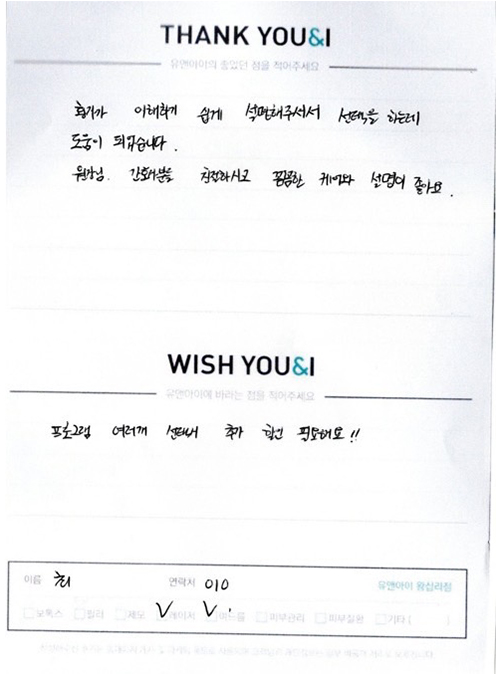 THANK YOU&I
유앤아이의 좋았던 점을 적어주세요
환자가 이해하기 쉽게 설명해주셔서 선택을 하는데
도움이 되었습니다.
원장님. 간호사분들 친절하시고 꼼꼼한 케어와 설명이 좋아요.
WISH YOU&I
유앤아이에 바라는 점을 적어주세요
프로그램 여러개 선택시 추가 할인 필요해요!!
이름 최 연락처 010 유앤아이 왕십리점
보톡스 필러 제모 V 레이저 V 여드름 피부관리 피부질환 기타 ( )